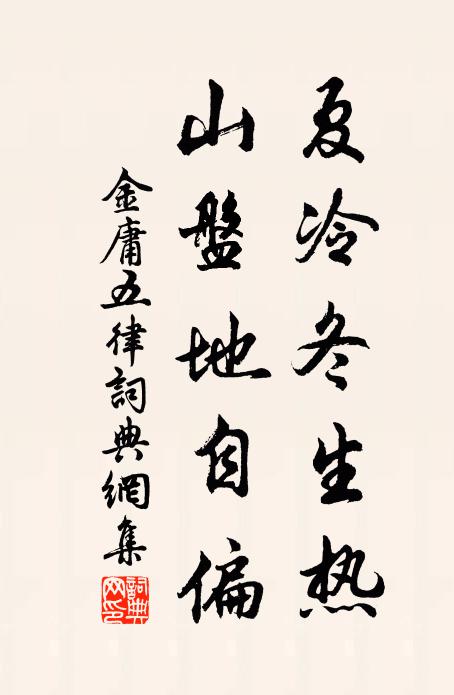 夏冷冬生热
山盤地自偏
金庸五律詞典網集
詞典
网印